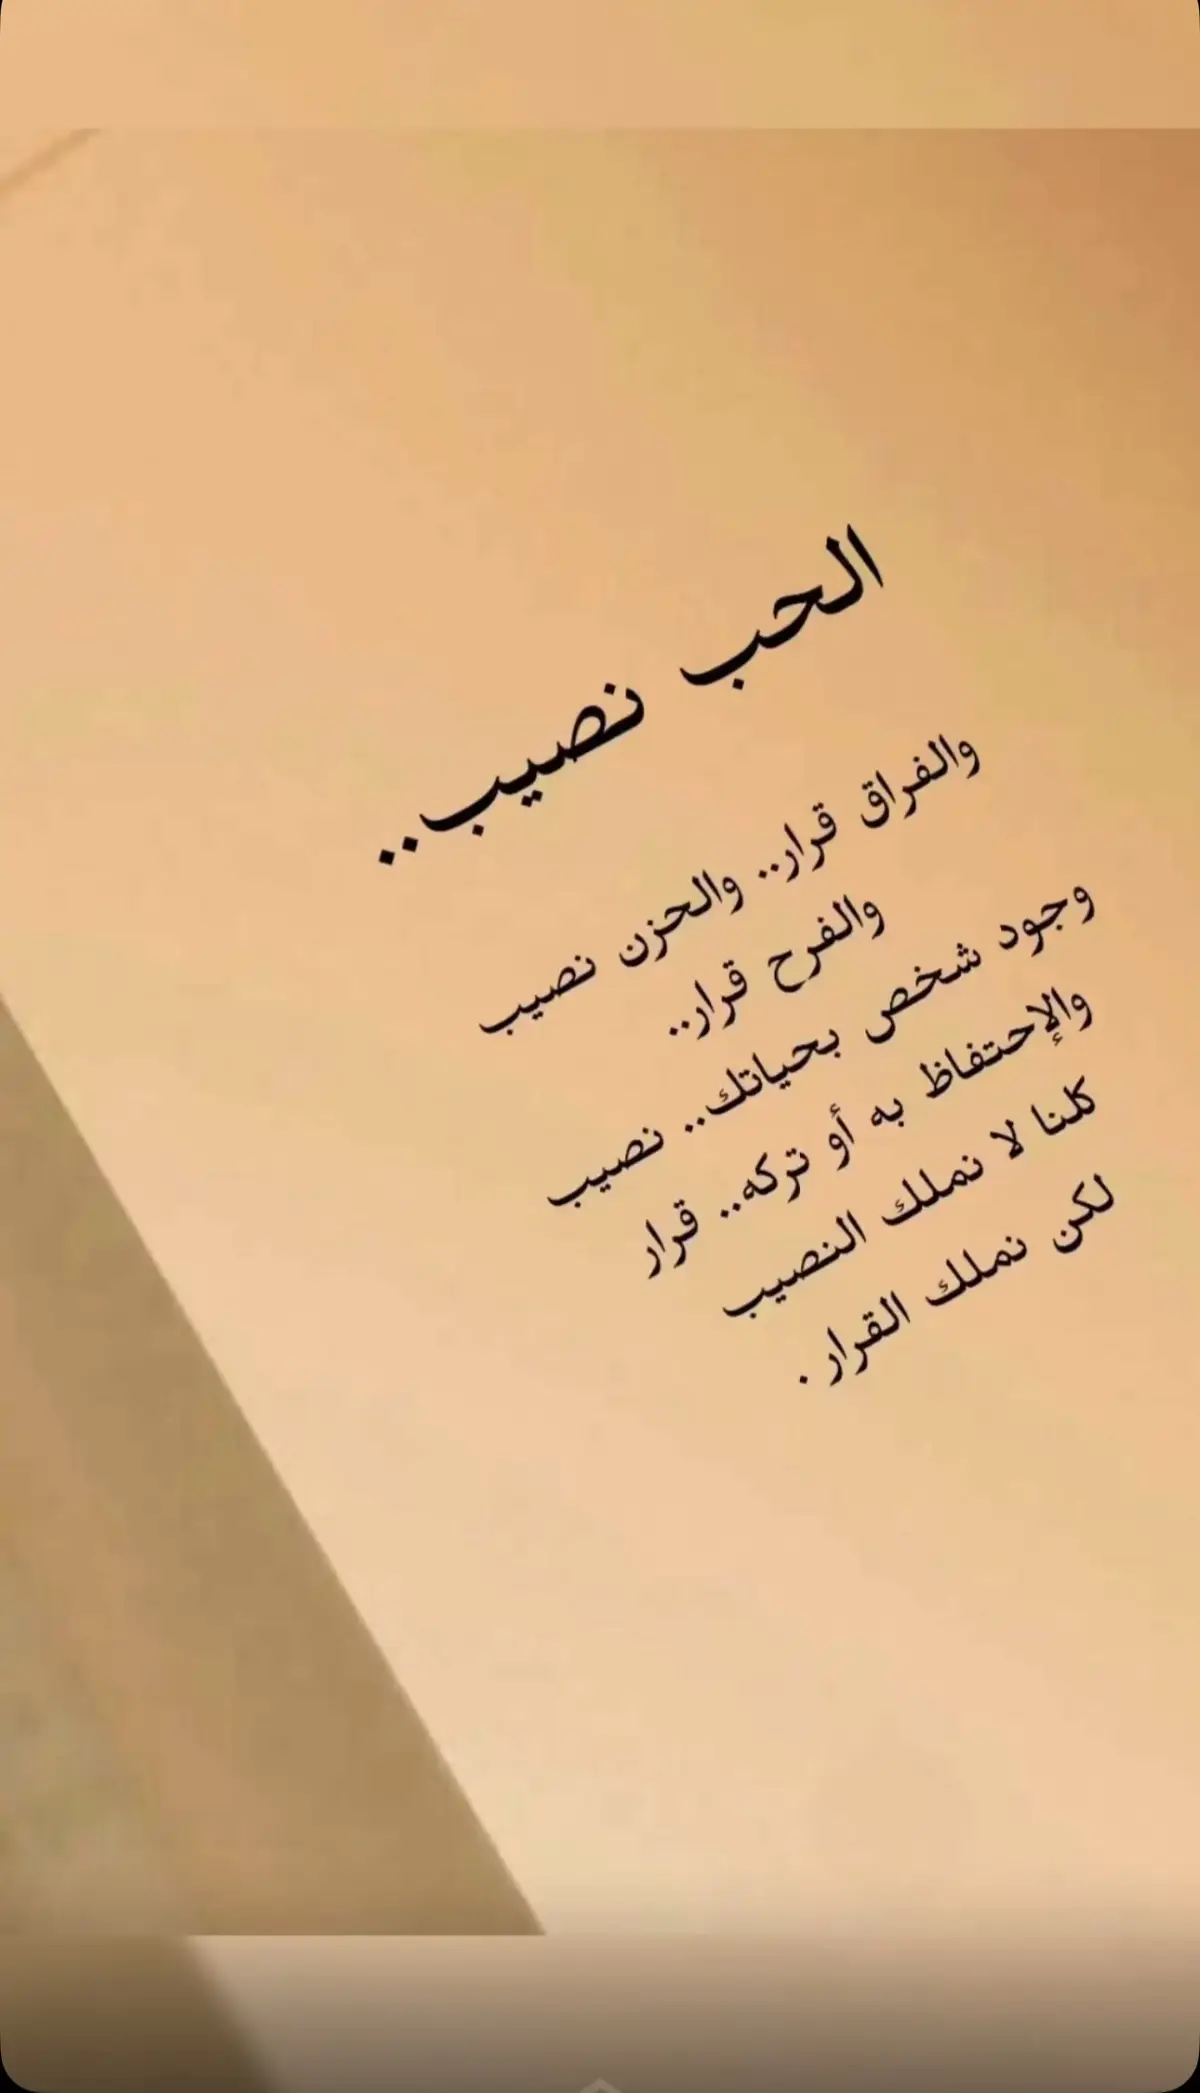 الحب نصيب..
والفراق قرار.. والحزن نصيب
والفرح قرار..
وجود شخص بحياتك.. نصيب
والإحتفاظ به أو تركه.. قرار
كلنا لا نملك النصيب
لكن نملك القرار .